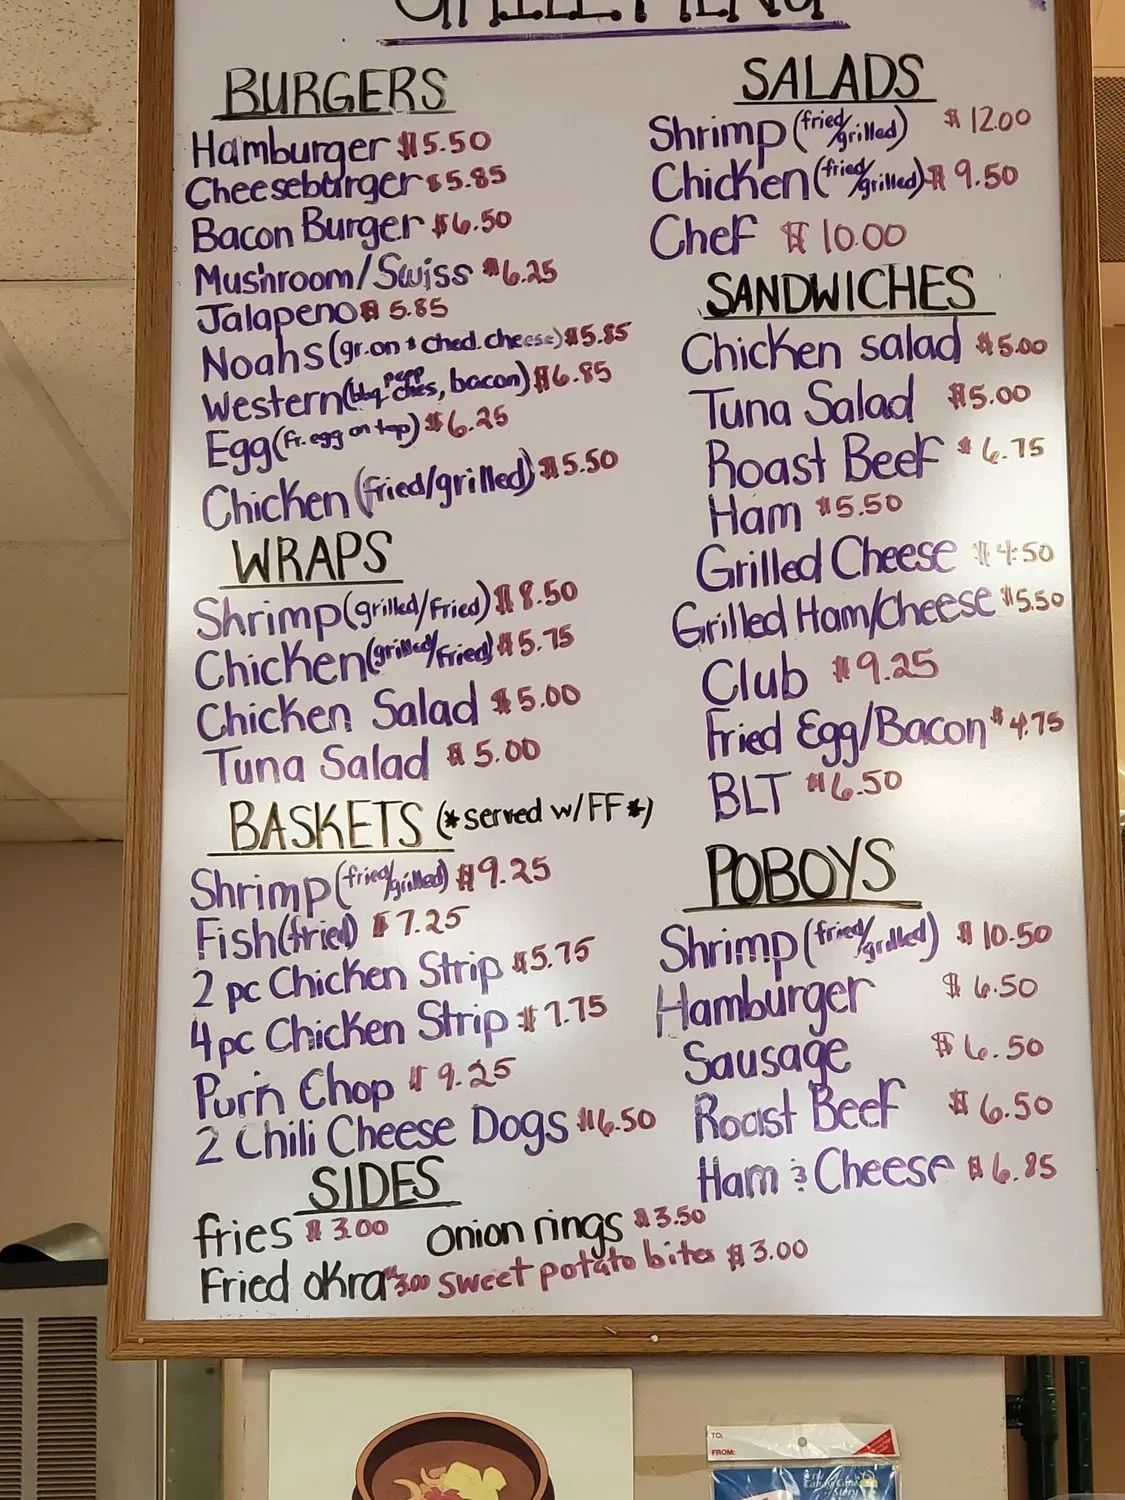 GRILL MENU
BURGERS
Hamburger $5.50
Cheeseburger $5.85
Bacon Burger $6.50
Mushroom/Swiss $6.25
Jalapeno $5.85
Noahs (gr.on & ched. cheese) $5.85
Western (bbq, pepp ches, bacon) $6.85
Egg (fr. egg on top) $6.25
Chicken (fried/grilled) $5.50
WRAPS
Shrimp (grilled/fried) $8.50
Chicken (grilled/fried) $5.75
Chicken Salad $5.00
Tuna Salad $5.00
BASKETS (*served w/ FF*)
Shrimp (fried/grilled) $9.25
Fish (fried) $7.25
2 pc Chicken Strip $5.75
4 pc Chicken Strip $7.75
Chop $9.25
2 Chili Cheese Dogs $6.50
SIDES
fries $3.00 onion rings $3.50
Fried okra $3.00 sweet potato bites $3.00
SALADS
Shrimp (fried/grilled) $12.00
Chicken (fried/grilled) $9.50
Chef $10.00
SANDWICHES
Chicken salad $5.00
Tuna Salad $5.00
Roast Beef $6.75
Ham $5.50
Grilled Cheese $4.50
Grilled Ham/Cheese $5.50
Club $9.25
Fried Egg/Bacon $4.75
BLT $6.50
POBOYS
Shrimp (fried/grilled) $10.50
Hamburger $6.50
Sausage $6.50
Roast Beef $6.50
Ham & Cheese $6.85
TO:
FROM: